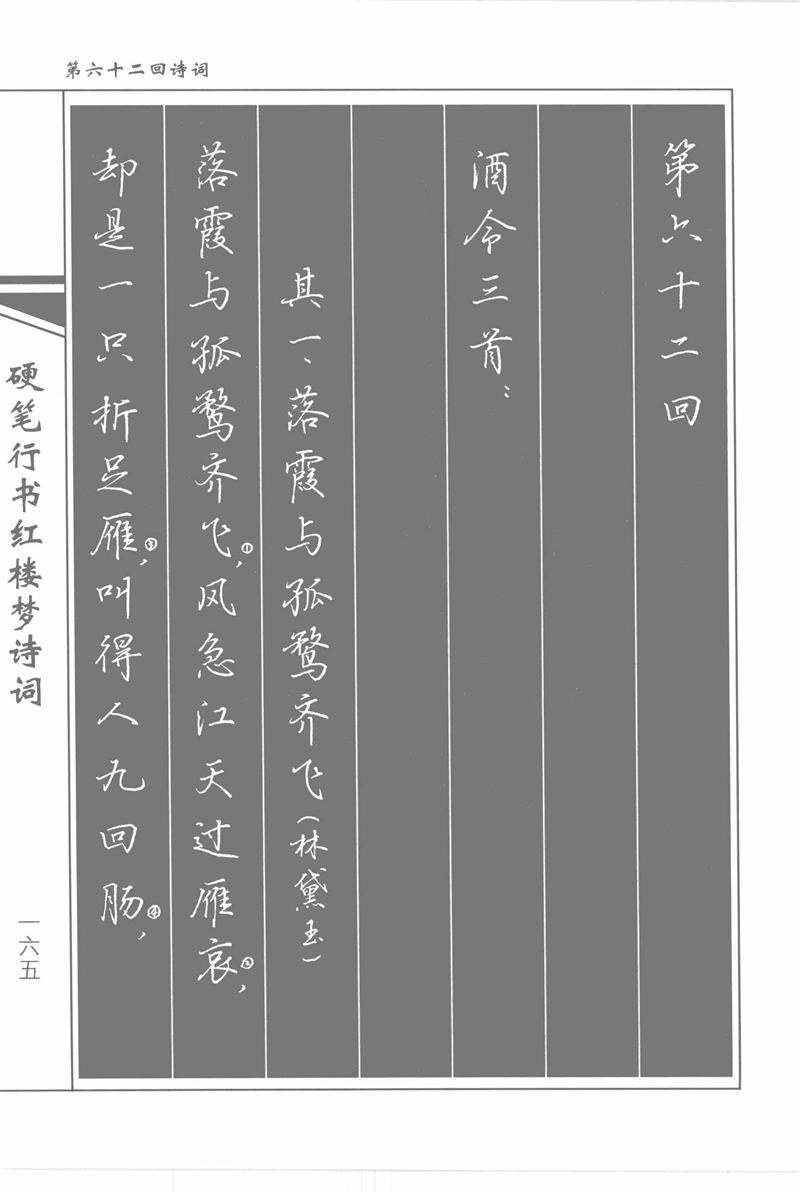 第六十二回诗词
第六十二回
酒令三首：
其一、落霞与孤鹜齐飞（林黛玉）
落霞与孤鹜齐飞①，风急江天过雁哀②，
却是一只折足雁③，叫得人九回肠④，
硬笔行书红楼梦诗词
一六五